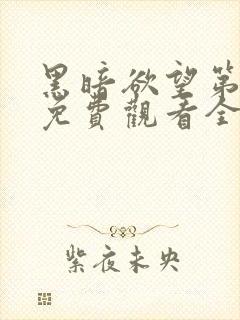 黑暗欲望第
免費觀看全
紫夜未央